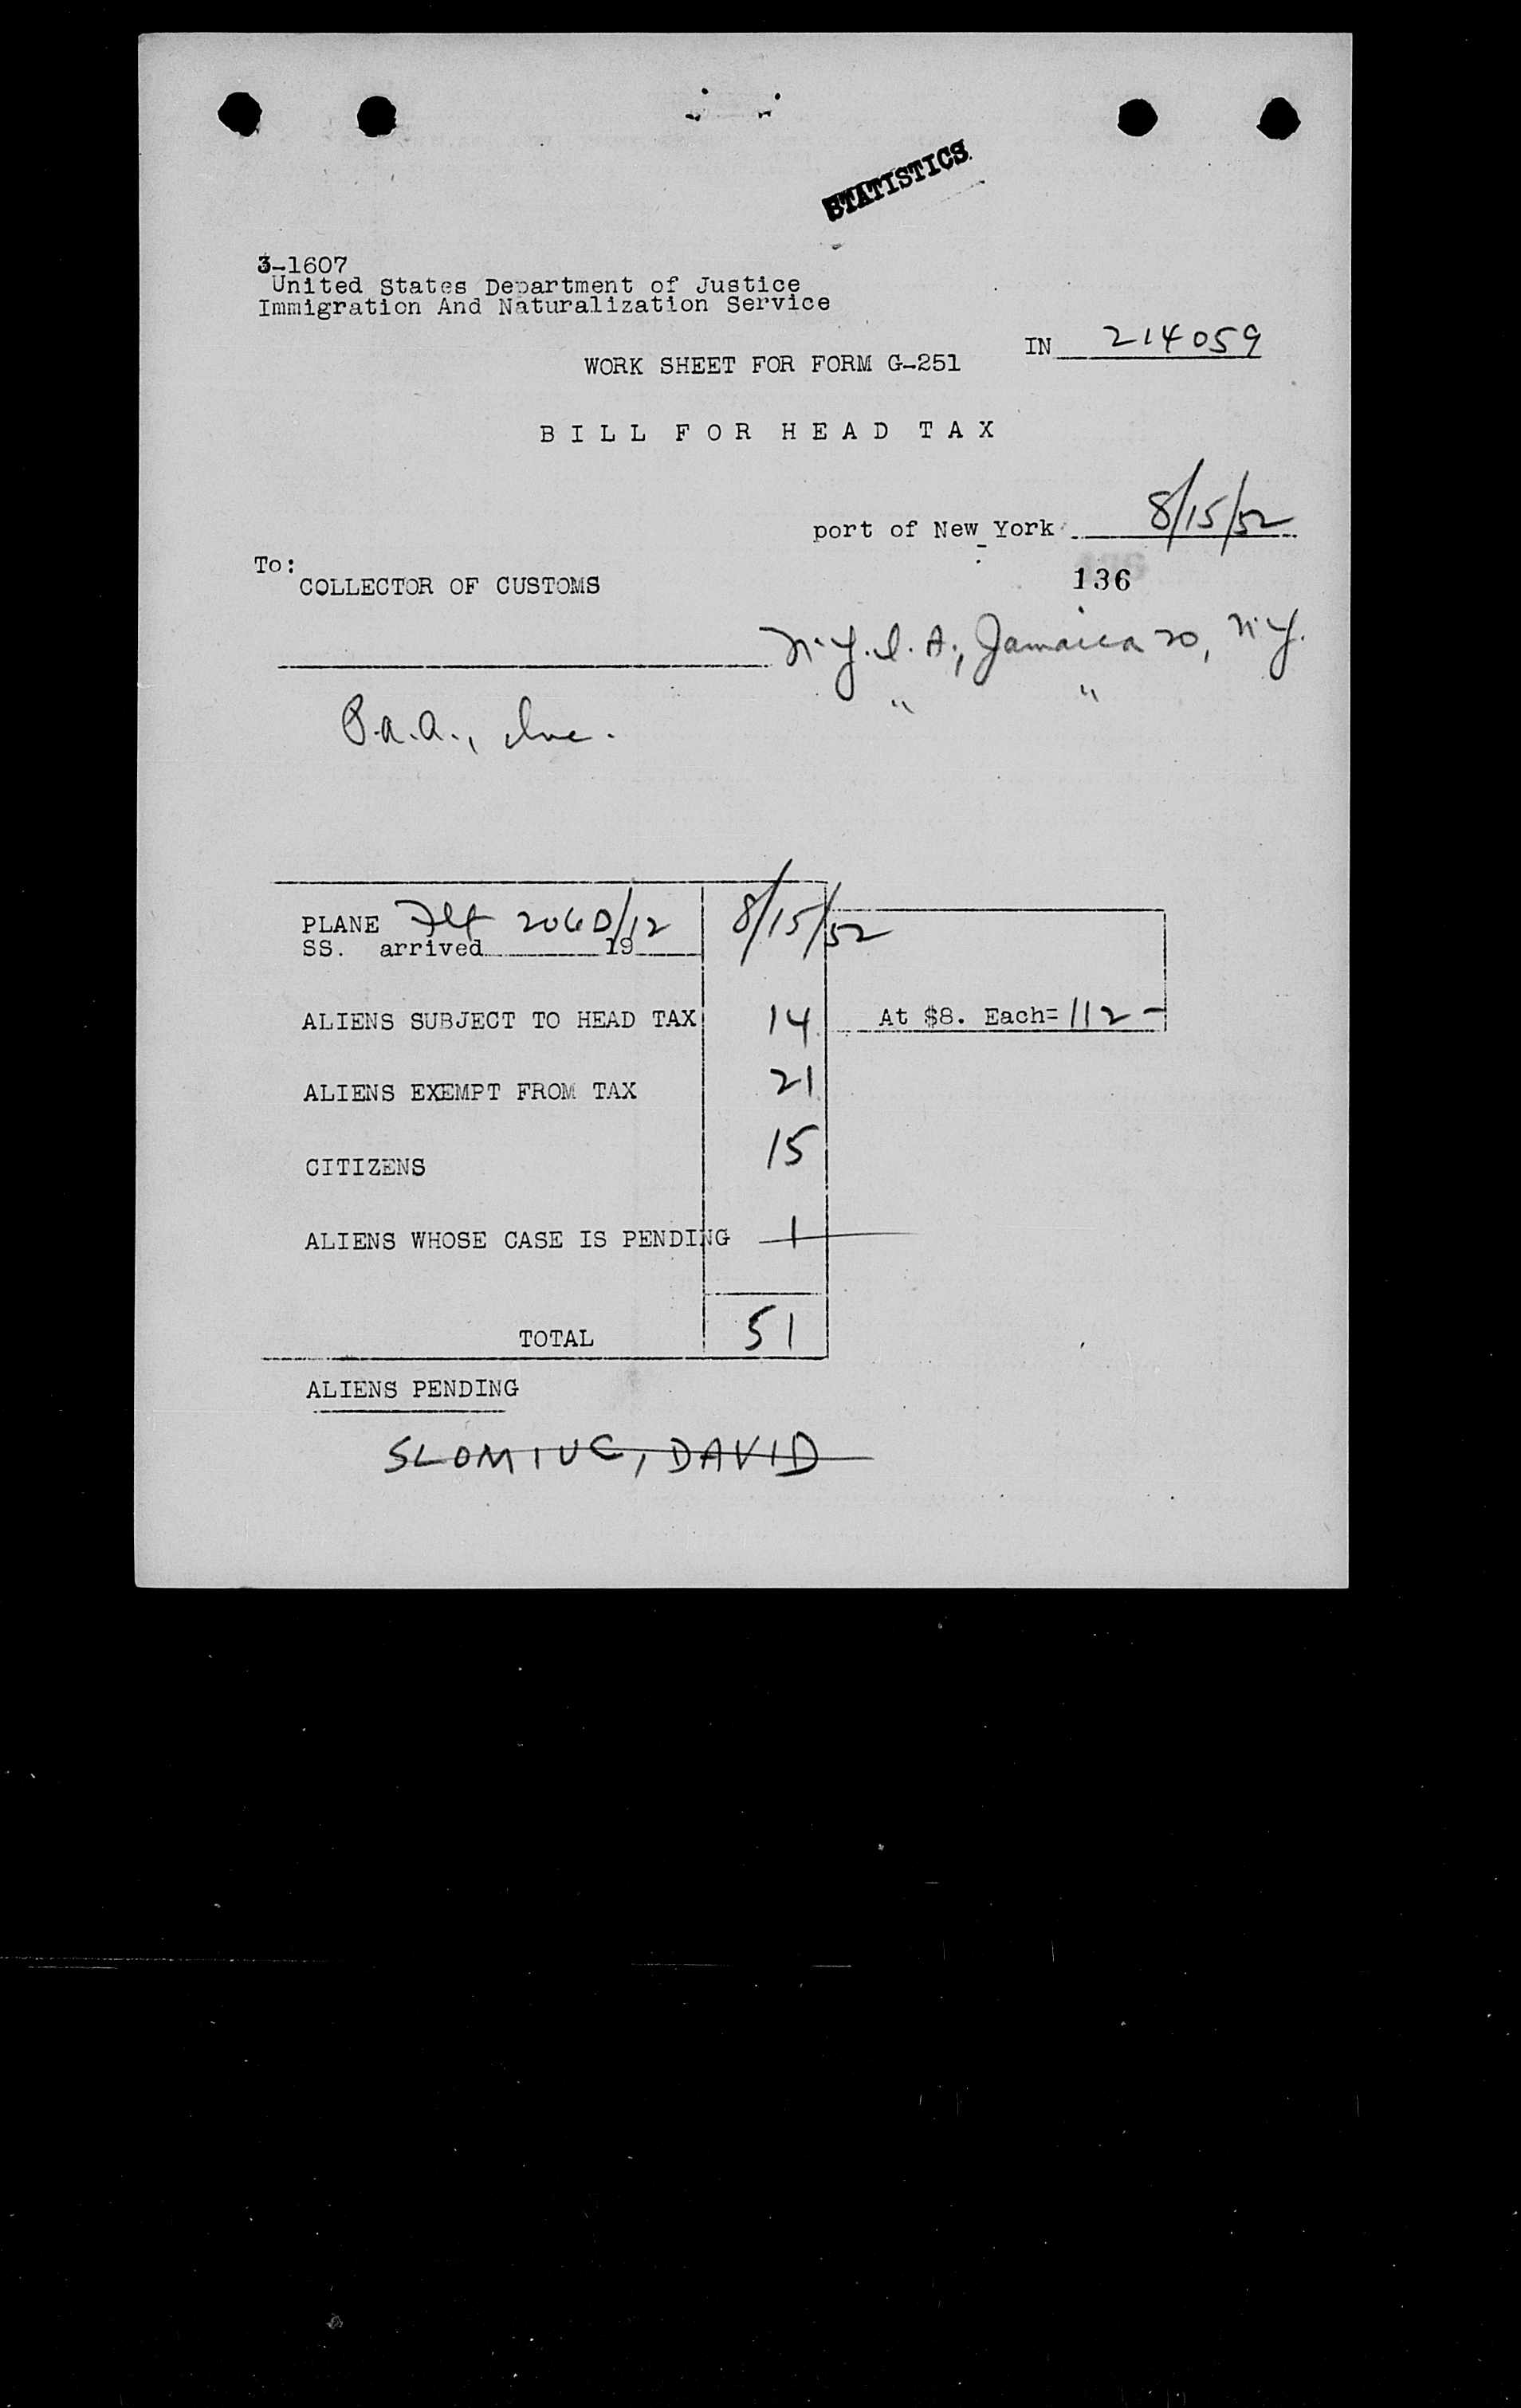 STATISTICS
3-1607
United States Department of Justice
Immigration And Naturalization Service
IN 214059
WORK SHEET FOR FORM G-251
BILL FOR HEAD TAX
port of New York 8/15/52
To:
COLLECTOR OF CUSTOMS
136
N.Y.I.A., Jamaica 30, N.Y.
" "
P.A.A., Inc.
PLANE Flt 206D/12 8/15/52
SS. arrived 19
ALIENS SUBJECT TO HEAD TAX 14 At $8. Each= 112-
ALIENS EXEMPT FROM TAX 21
CITIZENS 15
ALIENS WHOSE CASE IS PENDING 1
TOTAL 51
ALIENS PENDING
SLOMIUC, DAVID